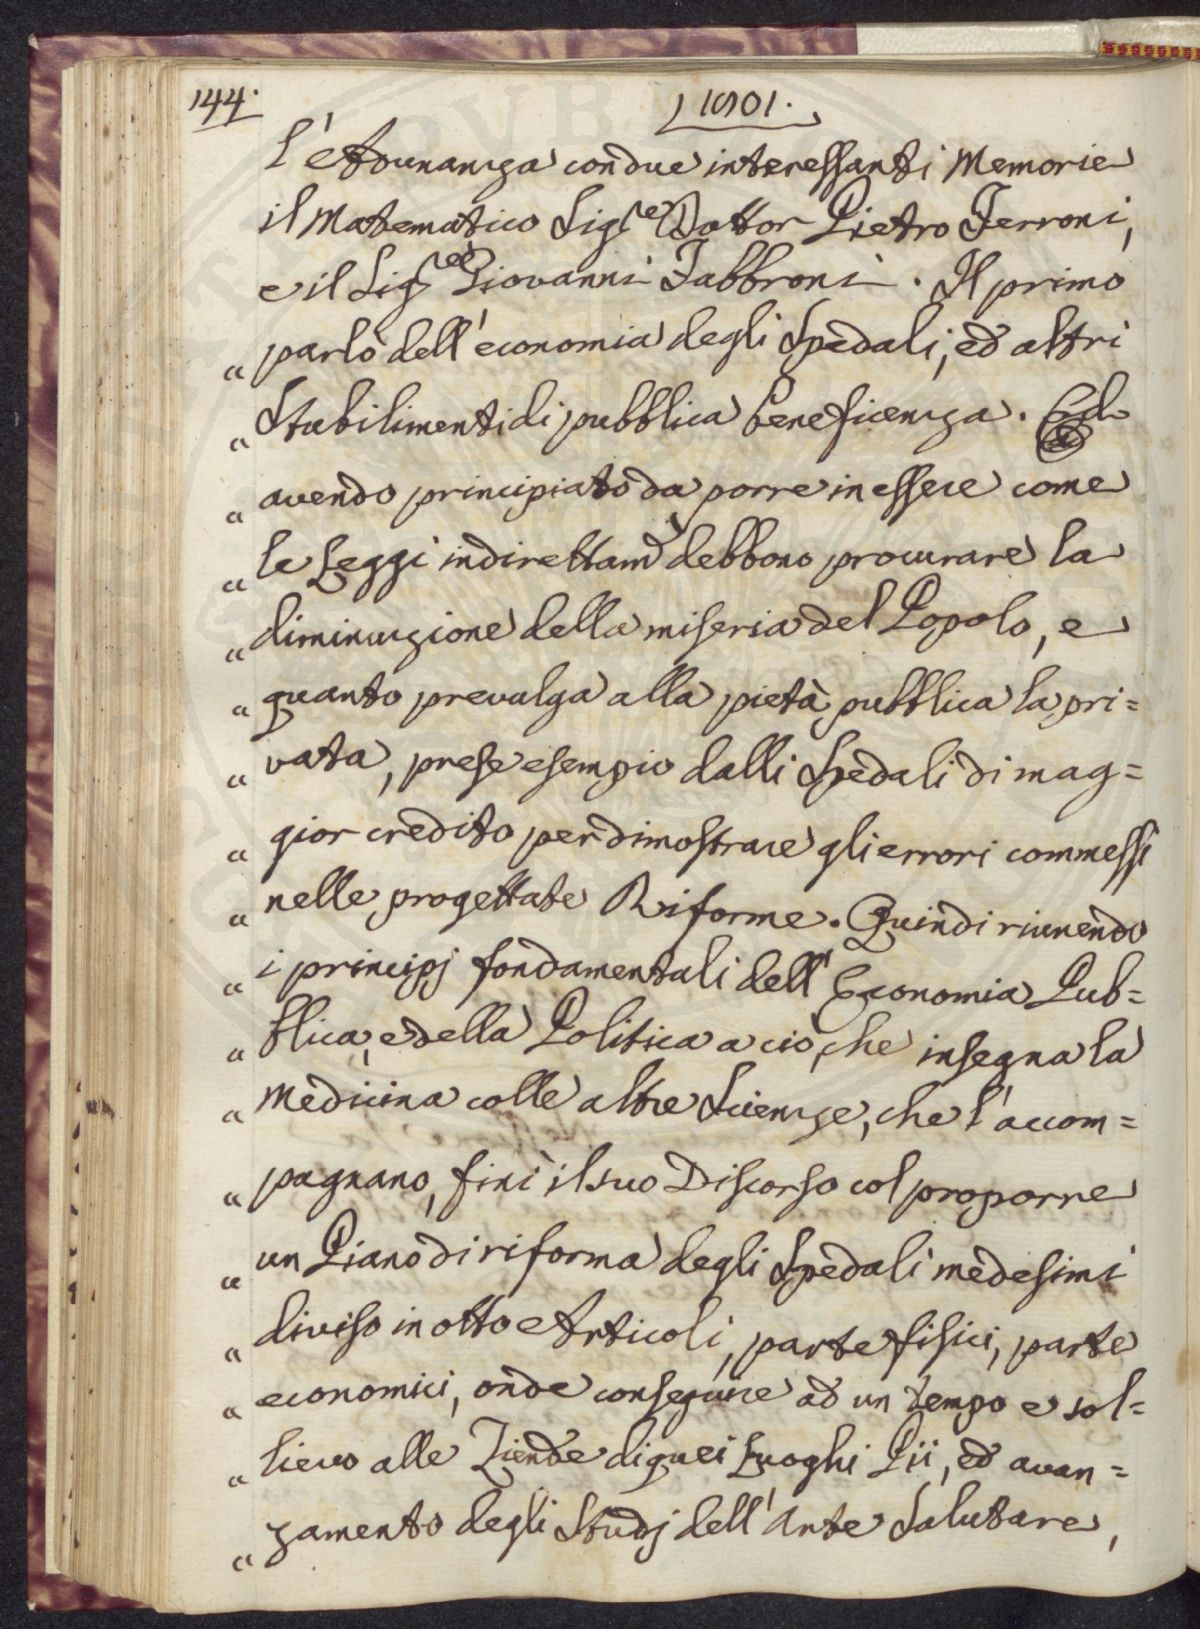 144.
1801.
l'Adunanza con due interessanti Memorie
il Matematico Sigre Dottor Pietro Ferroni,
e il Sigre Giovanni Fabbroni. Il primo
„ parlò dell'economia degli Spedali, ed altri
„ Stabilimenti di pubblica beneficenza. Ed
„ avendo principiato da porre in essere come
„ le Leggi indirettamte debbono procurare la
„ diminuzione della miseria del Popolo, e
„ quanto prevalga alla pietà pubblica la pri=
„ vata, prese esempio dalli Spedali di mag=
„ gior credito per dimostrare gli errori commessi
„ nelle progettate Riforme. Quindi riunendo
„ i principj fondamentali dell'Economia Pub=
„ blica, e della Politica a ciò, che insegna la
„ Medicina colle altre Scienze, che l'accom=
„ pagnano, finì il suo Discorso col proporre
„ un Piano di riforma degli Spedali medesimi
„ diviso in otto Articoli, parte fisici, parte
„ economici, onde conseguire ad un tempo e sol=
„ lievo alle Ziende di quei Luoghi Pii, ed avan=
„ zamento degli Studj dell'Arte Salutare,